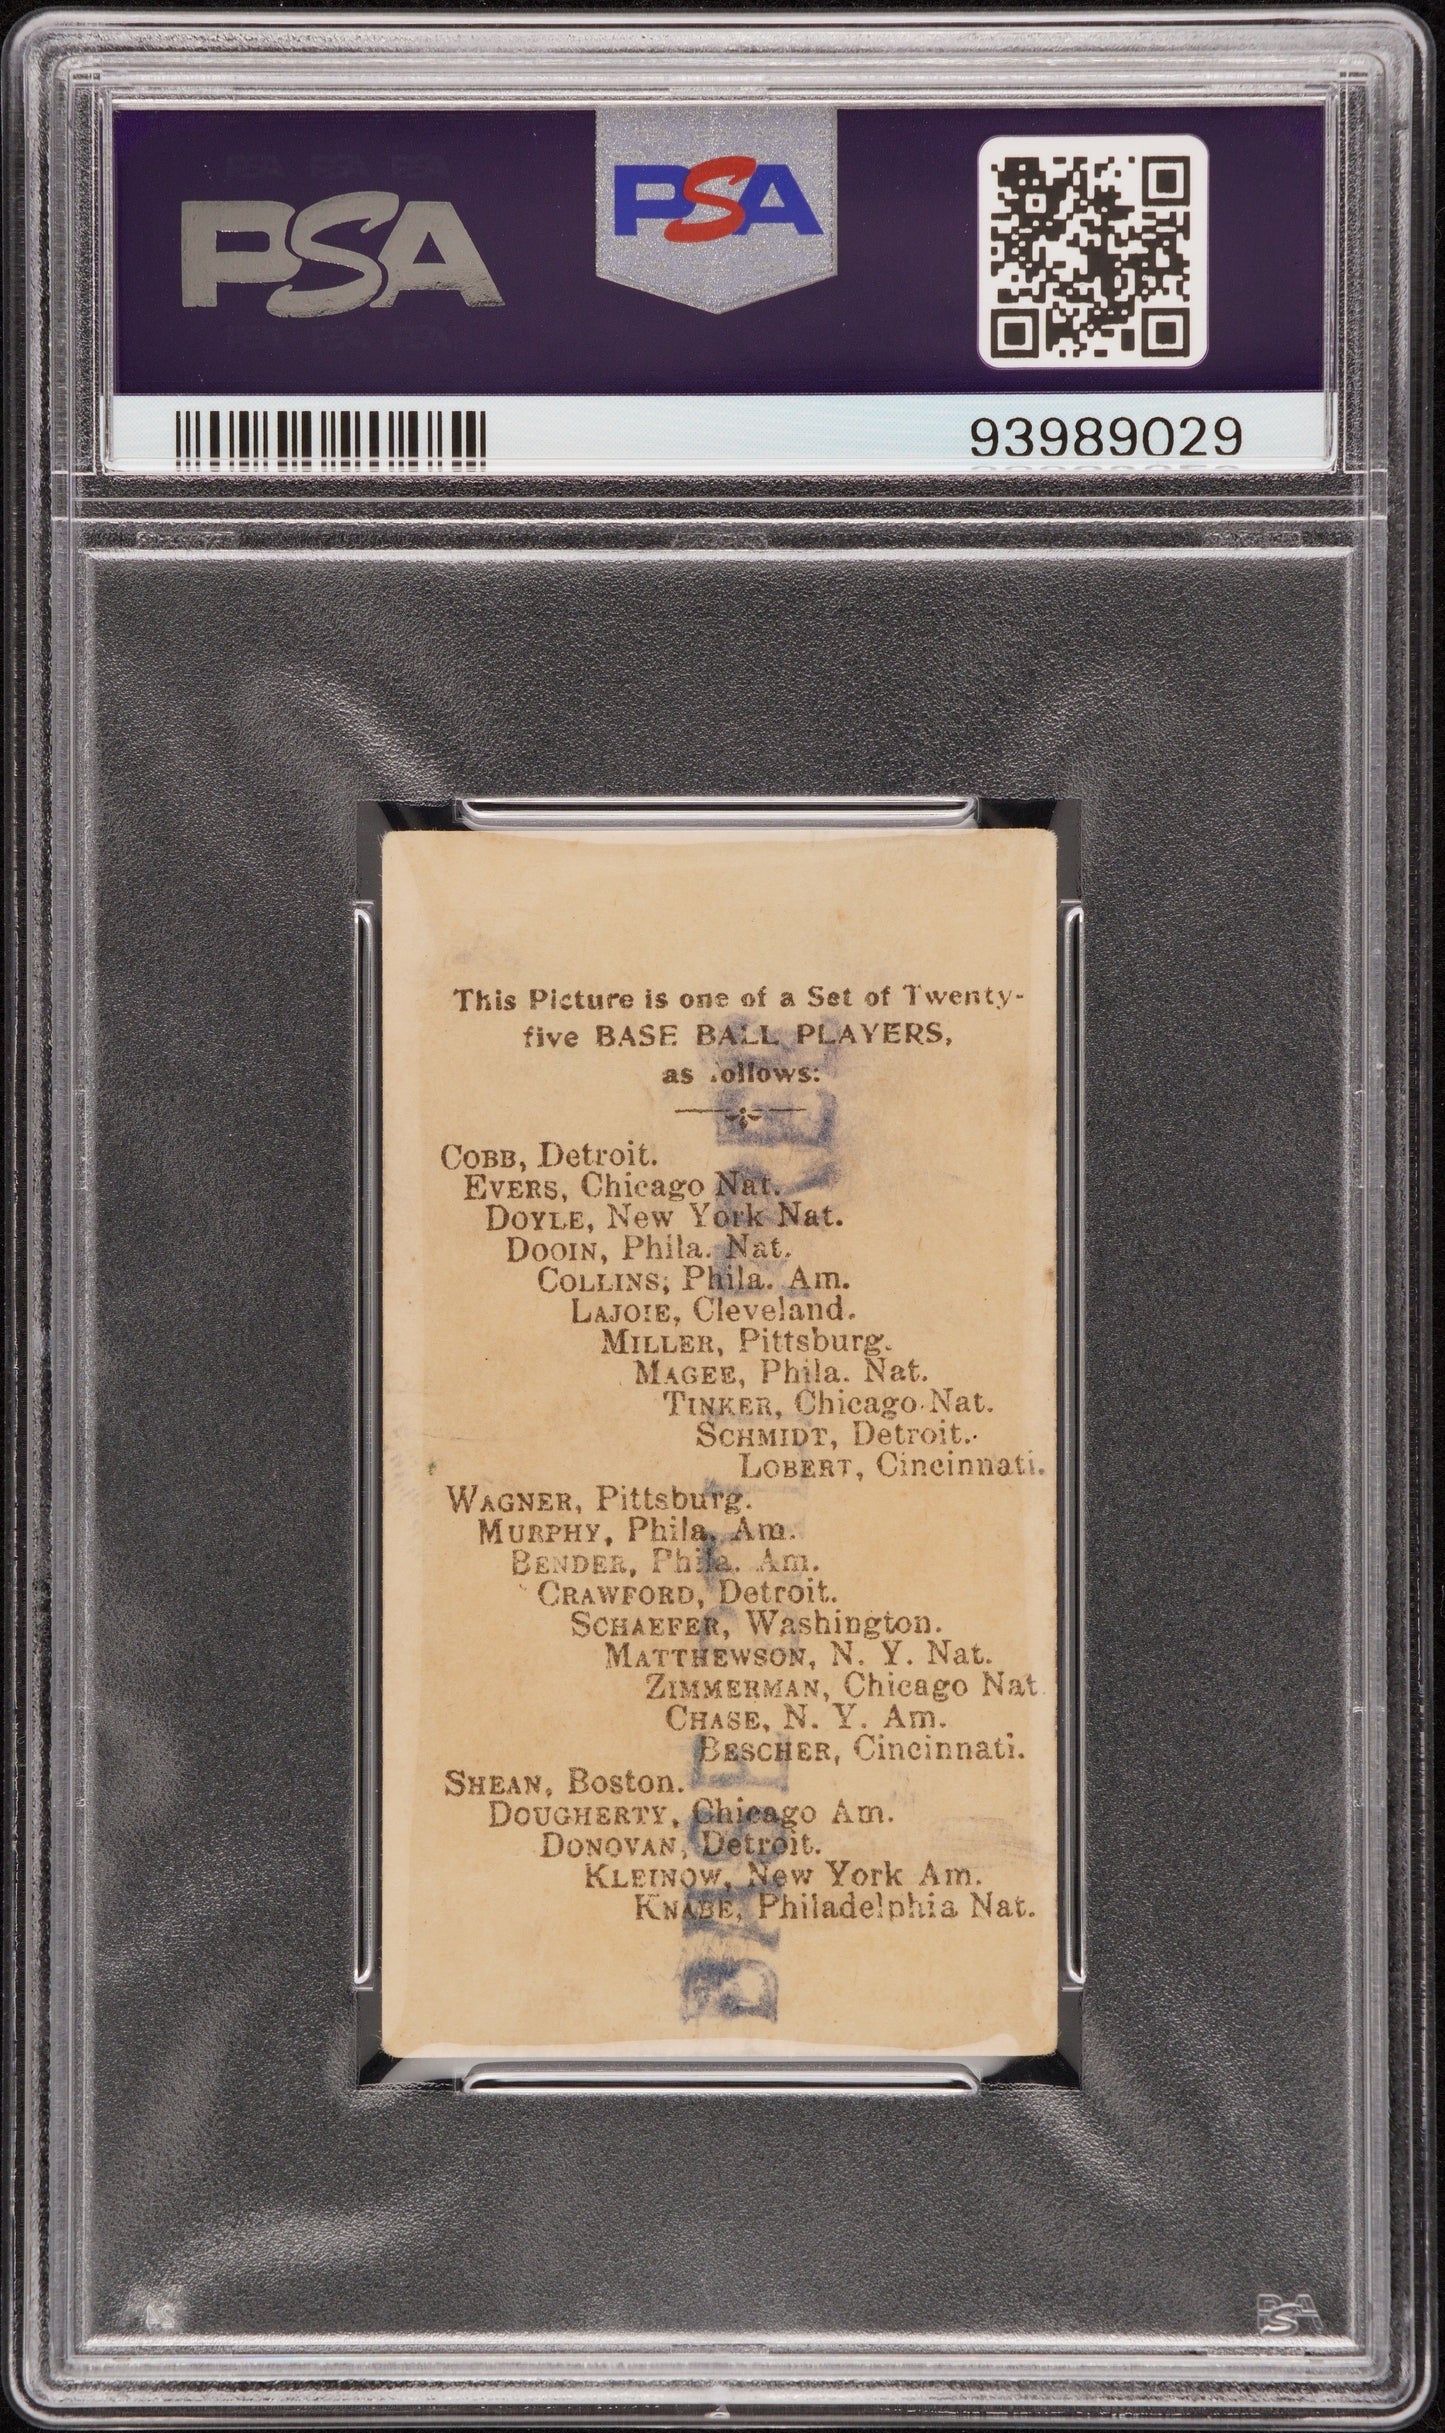 PSA
PSA
93989029
This Picture is one of a Set of Twenty-
five BASE BALL PLAYERS,
as follows:
COBB, Detroit.
EVERS, Chicago Nat.
DOYLE, New York Nat.
DOOIN, Phila. Nat.
COLLINS, Phila. Am.
LAJOIE, Cleveland.
MILLER, Pittsburg.
MAGEE, Phila. Nat.
TINKER, Chicago Nat.
SCHMIDT, Detroit.
LOBERT, Cincinnati.
WAGNER, Pittsburg.
MURPHY, Phila. Am.
BENDER, Phila. Am.
CRAWFORD, Detroit.
SCHAEFER, Washington.
MATTHEWSON, N. Y. Nat.
ZIMMERMAN, Chicago Nat
CHASE, N. Y. Am.
BESCHER, Cincinnati.
SHEAN, Boston.
DOUGHERTY, Chicago Am.
DONOVAN, Detroit.
KLEINOW, New York Am.
KNABE, Philadelphia Nat.
PSA